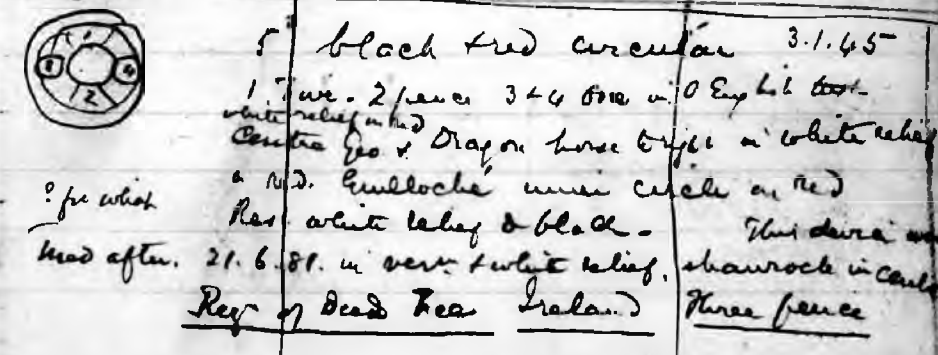 5 black & red circular 3.1.45
1 Five. 2 pence 3 & 4 in O English
white relief on red
Centre Geo & Dragon horse to right in white relief
on red. Guilloché inner circle on red
? for which Rest white relief & black. This device
used after. 21.6.81. in verm & white relief, shamrock in centre
Reg of Deed Fees Ireland Three pence
1
2
3
4